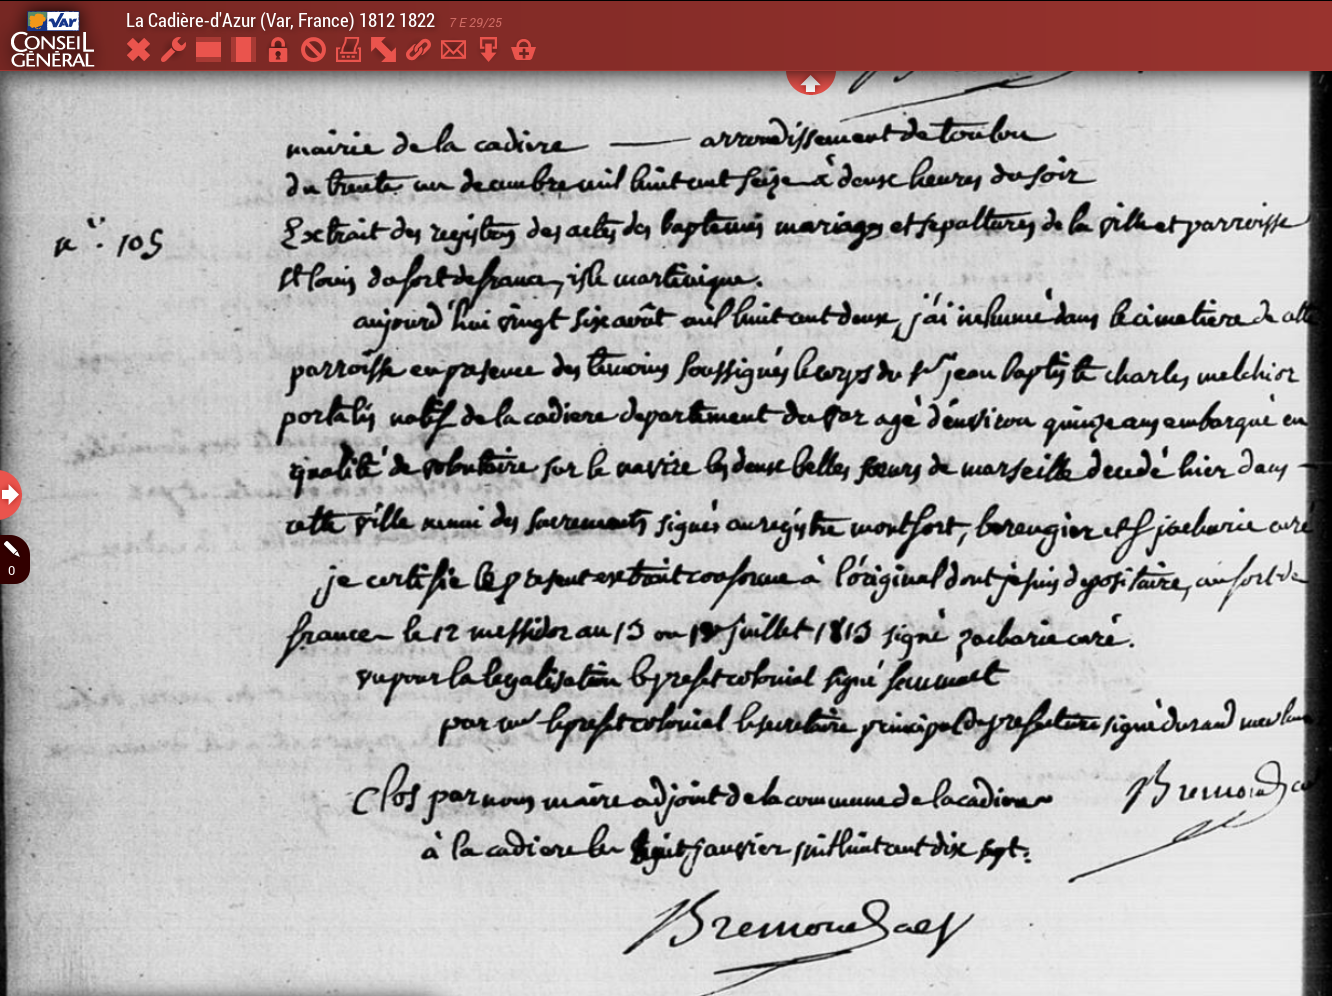 La Cadière-d'Azur (Var, France) 1812 1822 7 E 29/25
VAR
CONSEIL
GÉNÉRAL
mairie de la cadiere — arrondissement de toulon
du trente un decembre mil huit cent seize à deux heures du soir
n.° 105
Extrait des registres des actes des baptemes mariages et sepultures de la ville et parroisse
st louis du fort de france, isle martinique.
aujourd'hui vingt six août mil huit cent deux, j'ai inhumé dans le cimetiere de cette
parroisse en presence des temoins soussignés le corps du sr jean baptiste charles melchior
portalis natif de la cadiere departement du var agé d'environ quinze ans embarqué en
qualité de volontaire sur le navire les deux belles sœurs de marseille decedé hier dans
cette ville muni des sacrements signés au registre montfort, berengier et f zacharie curé
je certifie le present extrait conforme à l'original dont je suis depositaire, au fort de
france le 12 messidor an 13 ou juillet 1813 signé zacharie curé.
vu pour la legalisation le prefet colonial signé
par le prefet colonial le secretaire principal de prefecture signé durand
Clos par nous maire adjoint de la commune de la cadiere Bremond
à la cadiere le huit janvier mil huit cent dix sept.
Bremond adj
0